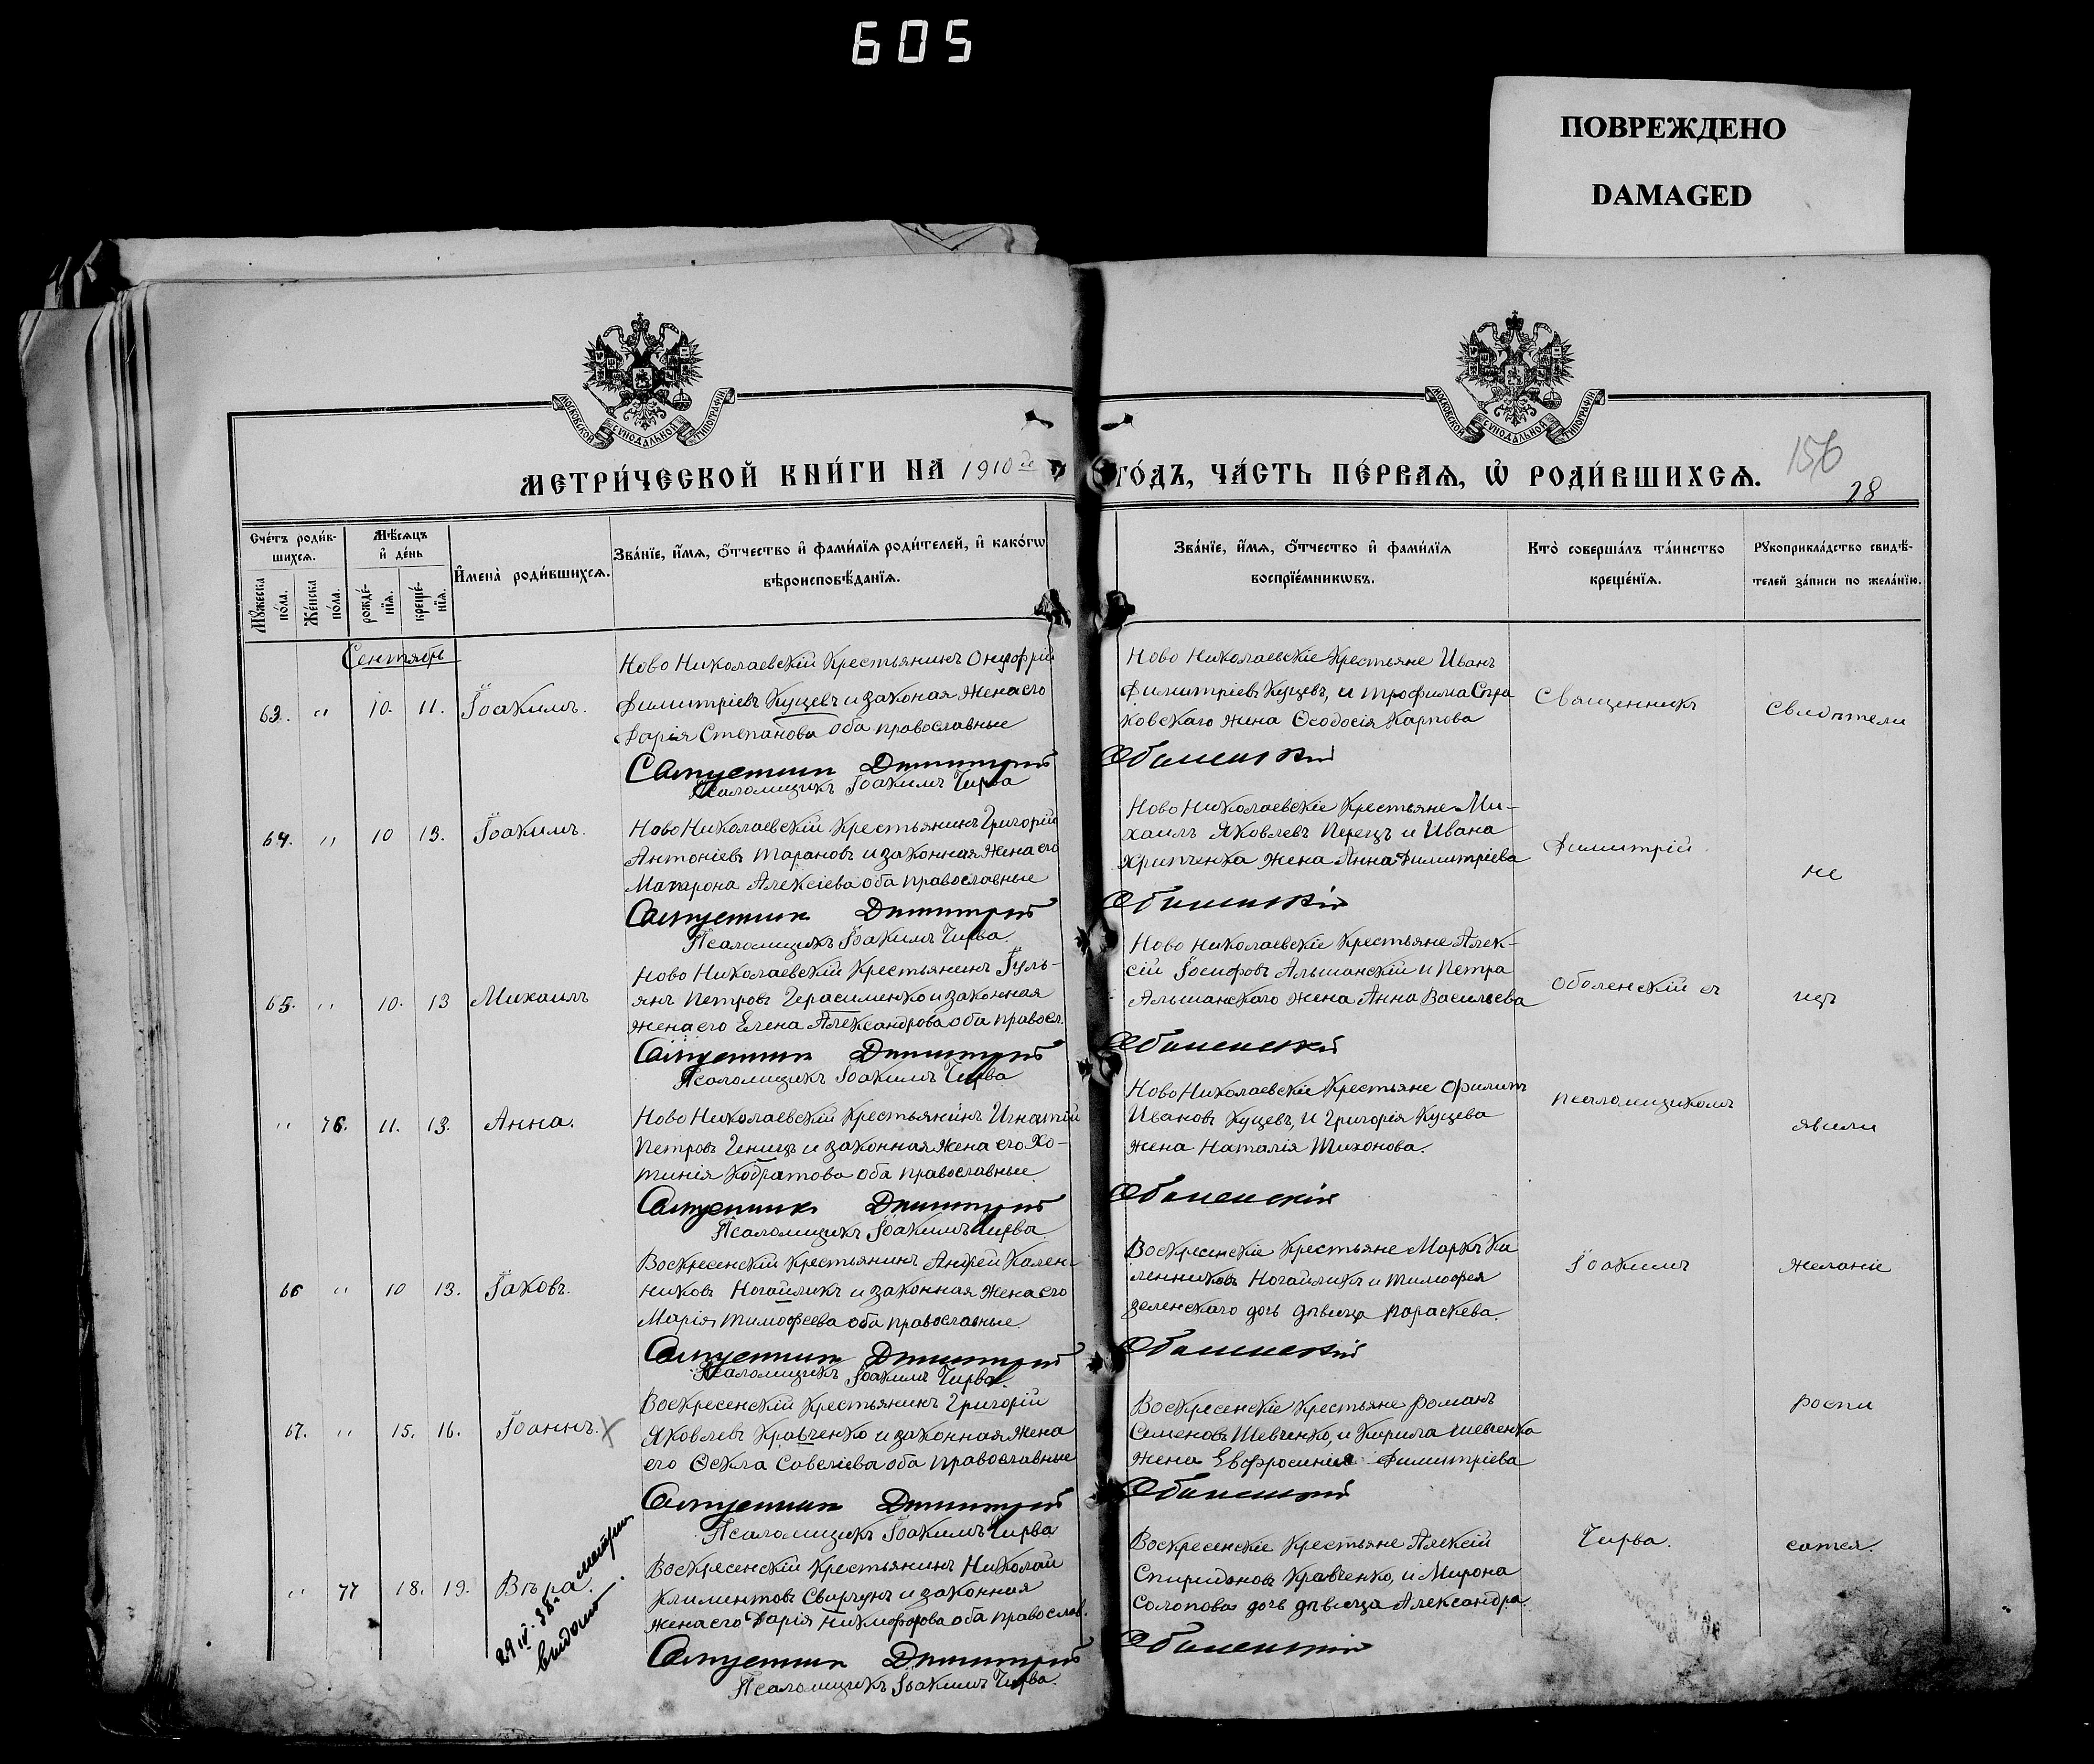 605
ПОВРЕЖДЕНО
DAMAGED
МОСКОВСКОЙ СѴНОДАЛЬНОЙ ТИПОГРАФІИ
МОСКОВСКОЙ СѴНОДАЛЬНОЙ ТИПОГРАФІИ
МЕТРИ́ЧЕСКОЙ КНИ́ГИ НА 1910 де
ГО́ДЪ, ЧА́СТЬ ПЕ́РВАѦ, Ѡ҆ РОДИ́ВШИХСѦ.
156
28
Сче́тъ роди́в-
шихсѧ.
Мꙋ́жеска по́ла.
Же́нска по́ла.
Мѣ́сѧцъ
и҆ де́нь
рожде́-
нїѧ.
креще́-
нїѧ.
И҆мена̀ роди́вшихсѧ.
Зва́нїе, и҆́мѧ, ѻ҆́тчество и҆ фами́лїѧ роди́телей, и҆ како́гѡ
вѣроисповѣ́данїѧ.
Зва́нїе, и҆́мѧ, ѻ҆́тчество и҆ фами́лїѧ
воспрїе́мникѡвъ.
Кто̀ соверша́лъ та́инство
креще́нїѧ.
Рꙋкоприкла́дство свидѣ́-
телей за́писи по жела́нїю.
Сентябрь
63. " 10. 11. Іоакимъ.
Ново Николаевскій Крестьянинъ Онуфрій
Димитріевъ Куцевъ и законая жена его
Дарія Степанова оба православные
Священникъ Димитрій
Псаломщикъ Іоакимъ Чирва
Ново Николаевскіе Крестьяне Иванъ
Димитріевъ Куцевъ, и трофима
жена Ѳеодосія Карпова
Оболенскій
64. " 10 13. Іоакимъ.
Ново Николаевскій Крестьянинъ Григорій
Антоніевъ Тарановъ и законная жена его
Матрона Алексіева оба православные
Священникъ Димитрій
Псаломщикъ Іоакимъ Чирва.
Ново Николаевскіе Крестьяне Ми-
хаилъ Яковлевъ Перецъ и Ивана
Хрипченка жена Анна Димитріева
Оболенскій
65. " 10. 13 Михаилъ
Ново Николаевскій Крестьянинъ Іуль-
янъ Петровъ Герасименко и законная
жена его Елена Александрова оба правосл.
Священникъ Димитрій
Псаломщикъ Іоакимъ Чирва
Ново Николаевскіе Крестьяне Алек-
сій Іосифовъ Альшанскій и Петра
Альшанскаго жена Анна Васильева
Оболенскій
" 76. 11. 13. Анна.
Ново Николаевскій Крестьянинъ Игнатій
Петровъ и законная жена его Хо-
тинія Кодратова оба православные.
Священникъ Димитрій
Псаломщикъ Іоакимъ Чирва.
Ново Николаевскіе Крестьяне Филипъ
Ивановъ Куцевъ, и Григорія Куцева
жена Наталія Тихонова.
Оболенскій
66 " 10 13. Іаковъ.
Воскресенскій Крестьянинъ Андрей Кален-
никовъ Ногайликъ и законная жена его
Марія Тимофеева оба православные.
Священникъ Димитрій
Псаломщикъ Іоакимъ Чирва.
Воскресенскіе Крестьяне Маркъ Ка
ленниковъ Ногайликъ и Тимофея
Зеленскаго дочь дѣвица Параскева.
Оболенскій
67. " 15. 16. Іоаннъ. X
Воскресенскій Крестьянинъ Григорій
Яковлевъ Кравченко и законная жена
его Ѳекла Савеліева оба православные
Священникъ Димитрій
Псаломщикъ Іоакимъ Чирва
Воскресенскіе Крестьяне Романъ
Семеновъ Шевченко, и Кирила Шевченка
жена Евфросинія Димитріева
Оболенскій
" 77 18. 19. Вѣра.
29 IV. 38.
видано
Воскресенскій Крестьянинъ Николай
Климентовъ Сворчунъ и законная
жена его Дарія Никифорова оба православ.
Священникъ Димитрій
Псаломщикъ Іоакимъ Чирва.
Воскресенскіе Крестьяне Алексій
Спиридоновъ Кравченко, и Мирона
Солопова дочь дѣвица Александра.
Оболенскій
Священникъ
Димитрій
Оболенскій съ
псаломщикомъ
Іоакимъ
Чирва.
Свидѣтели
не
изъ
явили
желаніе
роспи
сатся.